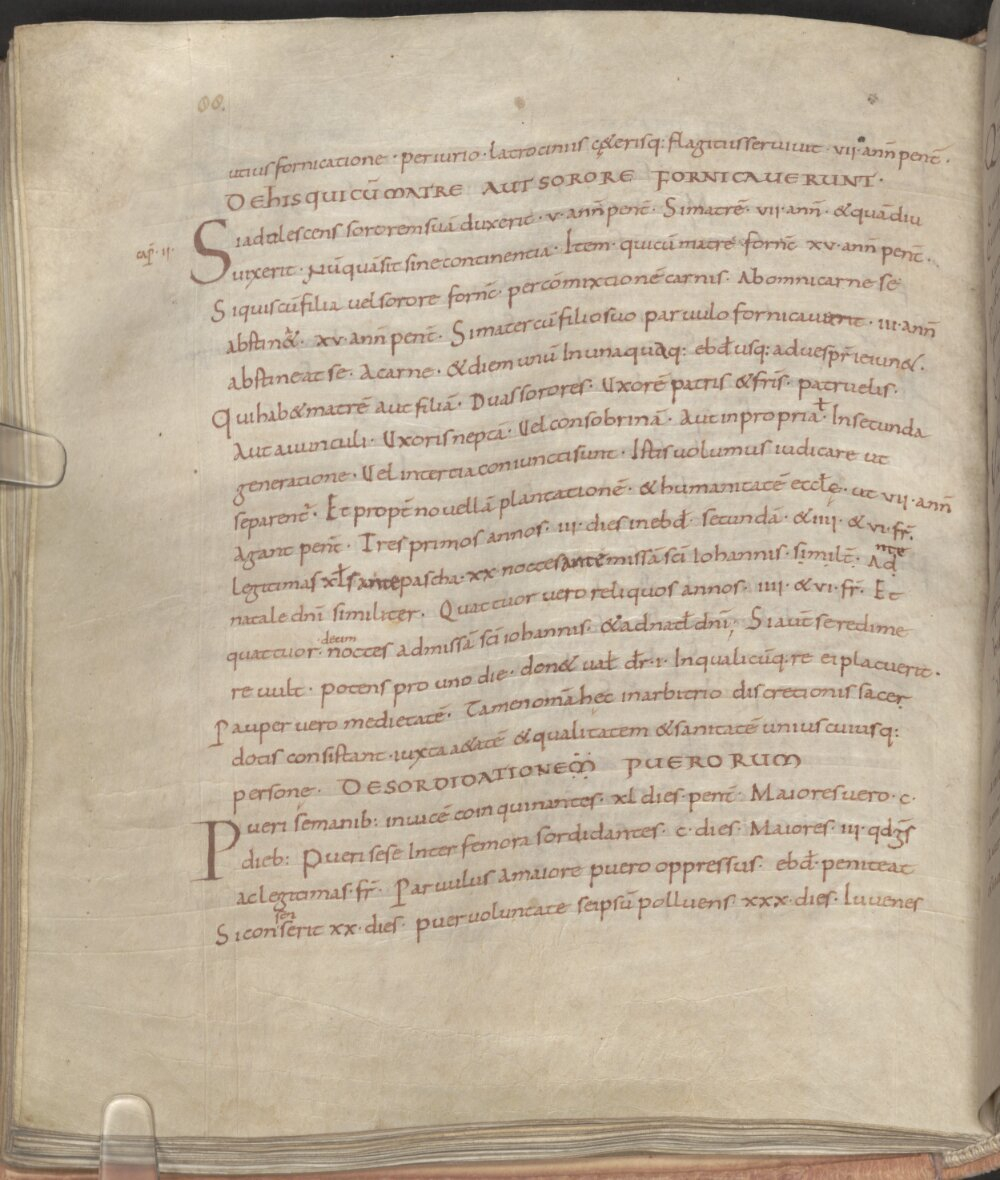 88.
utius fornicatione · periurio · latrociniis cęterisq; flagitiis seruiuit · vii · anñ peñt ·
DE his qui cũ matre aut sorore fornicauerunt ·
Si adulescens sororem suã duxerit · v · anñ peñt · Si matrẽ · vii · anñ · & quãdiu
cap̃ · ii · uixerit · nũquã sit sine continentia · Item · qui cũ matre forñc xv · anñ peñt ·
Si quis cũ filia uel sorore forñc · per cõmixtionẽ carnis · Ab omni carne se
abstin& · xv · anñ peñt · Si mater cũ filio suo paruulo fornicauerit · iii · anñ
abstineat se · A carne · & diem unũ In unaquaq; ebd̃ usq; ad uesp̃r ieiun& ·
Qui hab& matrẽ aut filiã · Duas sorores · Uxorẽ patris & fr̃is · patruelis ·
Aut auunculi · Uxoris neptã · Uel consobrinã · Aut in propria ł · In secunda
generatione · Uel in tertia coniuncti sunt · Istis uolumus iudicare ut
separent̃ · Et propt̃ nouellã plantationẽ · & humanitatẽ eccłę · ut vii · anñ
agant peñt · Tres primos annos · iii · dies in ebd̃ · secundã · & iiii · & vi · fr̃ ·
legitimas xł s ante pascha · xx noctes ante missã sc̃i Iohannis · similt̃ · Ad nte
natale dñi similiter · Quattuor uero reliquos annos · iiii · & vi · fr̃ · Et
quattuor · decim noctes ad missã sc̃i iohannis · & ad nat̃ł dñi ; Si aut̃ se redime
re uult · potens pro uno die · don& uał dr̃ · i · In qualicũq · re ei placuerit ·
Pauper uero medietatẽ · Tamen omã hęc in arbitrio discretionis sacer
dotis consistant · iuxta aetatẽ & qualitatem & sanitatẽ uniuscuiusq;
personę · DE SORDIDATIONEM PUERORUM
Pueri se manib; inuicẽ coinquinantes · xl dies · peñt · Maiores uero · c ·
dieb; Pueri sese Inter femora sordidantes · c · dies · Maiores · iii · qdg̃s
ac legitimas · fr̃ · Paruulus a maiore puero oppressus · ebd̃ · peniteat
Si con sen serit xx · dies · puer uoluntate seipsũ polluens xxx · dies · Iuuenes